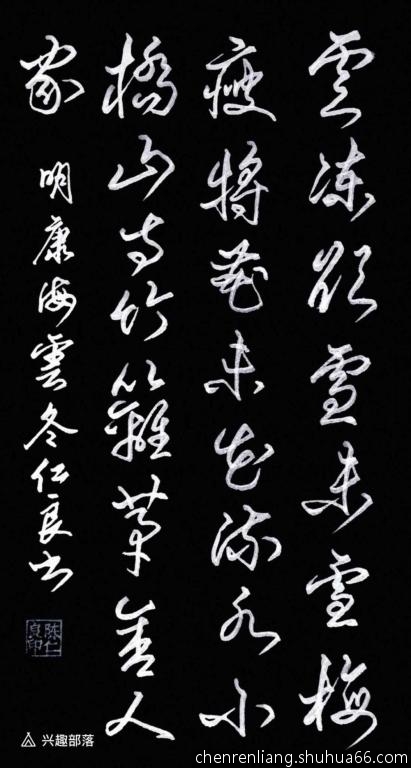 雲凍欲雪未雪梅
瘦將花未花流水小
橋山寺竹籬茅舍人
家 明康海雲冬仁良书
陈仁良印
兴趣部落
chenrenliang.shuhua66.com